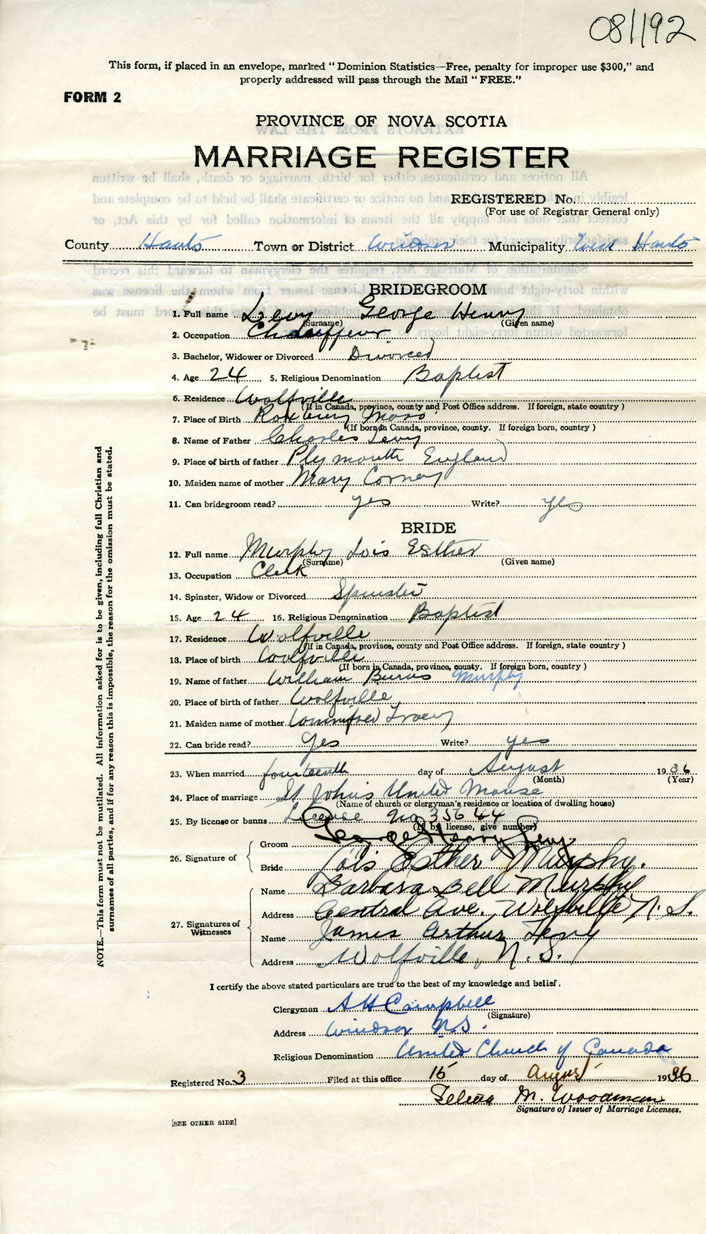 081192
This form, if placed in an envelope, marked "Dominion Statistics—Free, penalty for improper use $300," and
properly addressed will pass through the Mail "FREE."
FORM 2
PROVINCE OF NOVA SCOTIA
MARRIAGE REGISTER
REGISTERED No.
(For use of Registrar General only)
County Hants Town or District Windsor Municipality West Hants
BRIDEGROOM
1. Full name Levy George Henry
(Surname) (Given name)
2. Occupation Chauffeur
3. Bachelor, Widower or Divorced Divorced
4. Age 24 5. Religious Denomination Baptist
6. Residence Wolfville
(If in Canada, province, county and Post Office address. If foreign, state country)
7. Place of Birth Roxbury Mass
(If born in Canada, province, county. If foreign born, country)
8. Name of Father Charles Levy
9. Place of birth of father Plymouth England
10. Maiden name of mother Mary
11. Can bridegroom read? yes Write? yes
BRIDE
12. Full name Murphy Lois Esther
(Surname) (Given name)
13. Occupation Clerk
14. Spinster, Widow or Divorced Spinster
15. Age 24 16. Religious Denomination Baptist
17. Residence Wolfville
(If in Canada, province, county and Post Office address. If foreign, state country)
18. Place of birth Wolfville
(If born in Canada, province, county. If foreign born, country)
19. Name of father William Burns Murphy
20. Place of birth of father Wolfville
21. Maiden name of mother
22. Can bride read? Yes Write? yes
23. When married fourteenth day of August 1936
(Month) (Year)
24. Place of marriage St John's United Manse
(Name of church or clergyman's residence or location of dwelling house)
25. By license or banns License No 35644
(If by license, give number)
26. Signature of Groom George Henry Levy
Bride Lois Esther Murphy.
27. Signatures of Witnesses
Name Barbara Bell Murphy
Address Central Ave., Wolfville N.S.
Name James Arthur Levy
Address Wolfville, N.S.
I certify the above stated particulars are true to the best of my knowledge and belief.
Clergyman A H Campbell
(Signature)
Address Windsor N.S.
Religious Denomination United Church of Canada
Registered No. 3 Filed at this office 15 day of August 1936
M. Woodman
Signature of Issuer of Marriage Licenses.
[SEE OTHER SIDE]
NOTE.—This form must not be mutilated. All information asked for is to be given, including full Christian and
surnames of all parties, and if for any reason this is impossible, the reason for the omission must be stated.